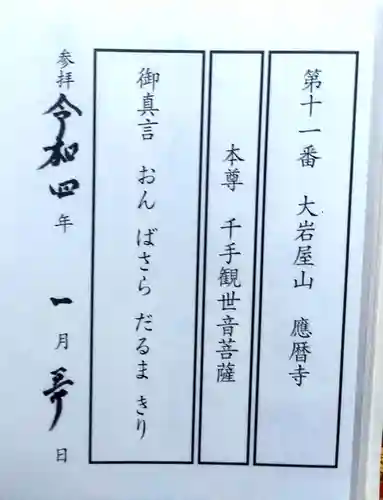 第十一番 大岩屋山 應暦寺
本尊 千手観世音菩薩
御真言 おん ばさら だるま きり
参拝 令和四年 一月 日